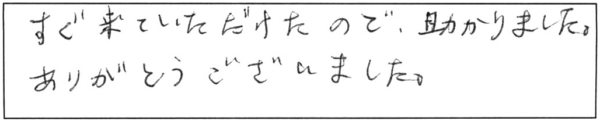 すぐ来ていただけたので、助かりました。
ありがとうございました。